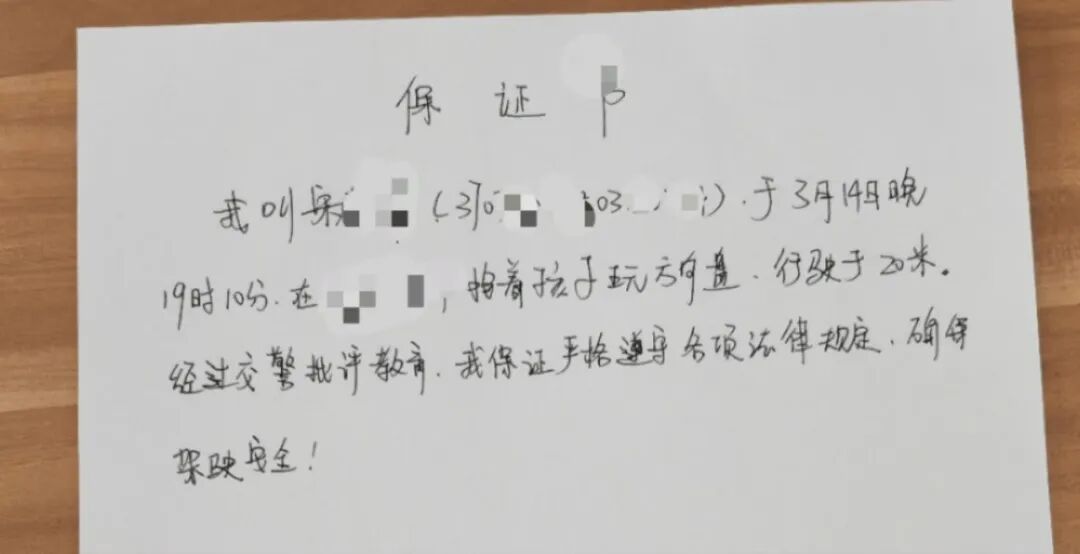 保 证
我叫 (370 03 )、于3月14日晚
19时10分、在 , 抱着孩子玩方向盘、行驶于20米。
经过交警批评教育、我保证严格遵守各项法律规定、确保
驾驶安全!